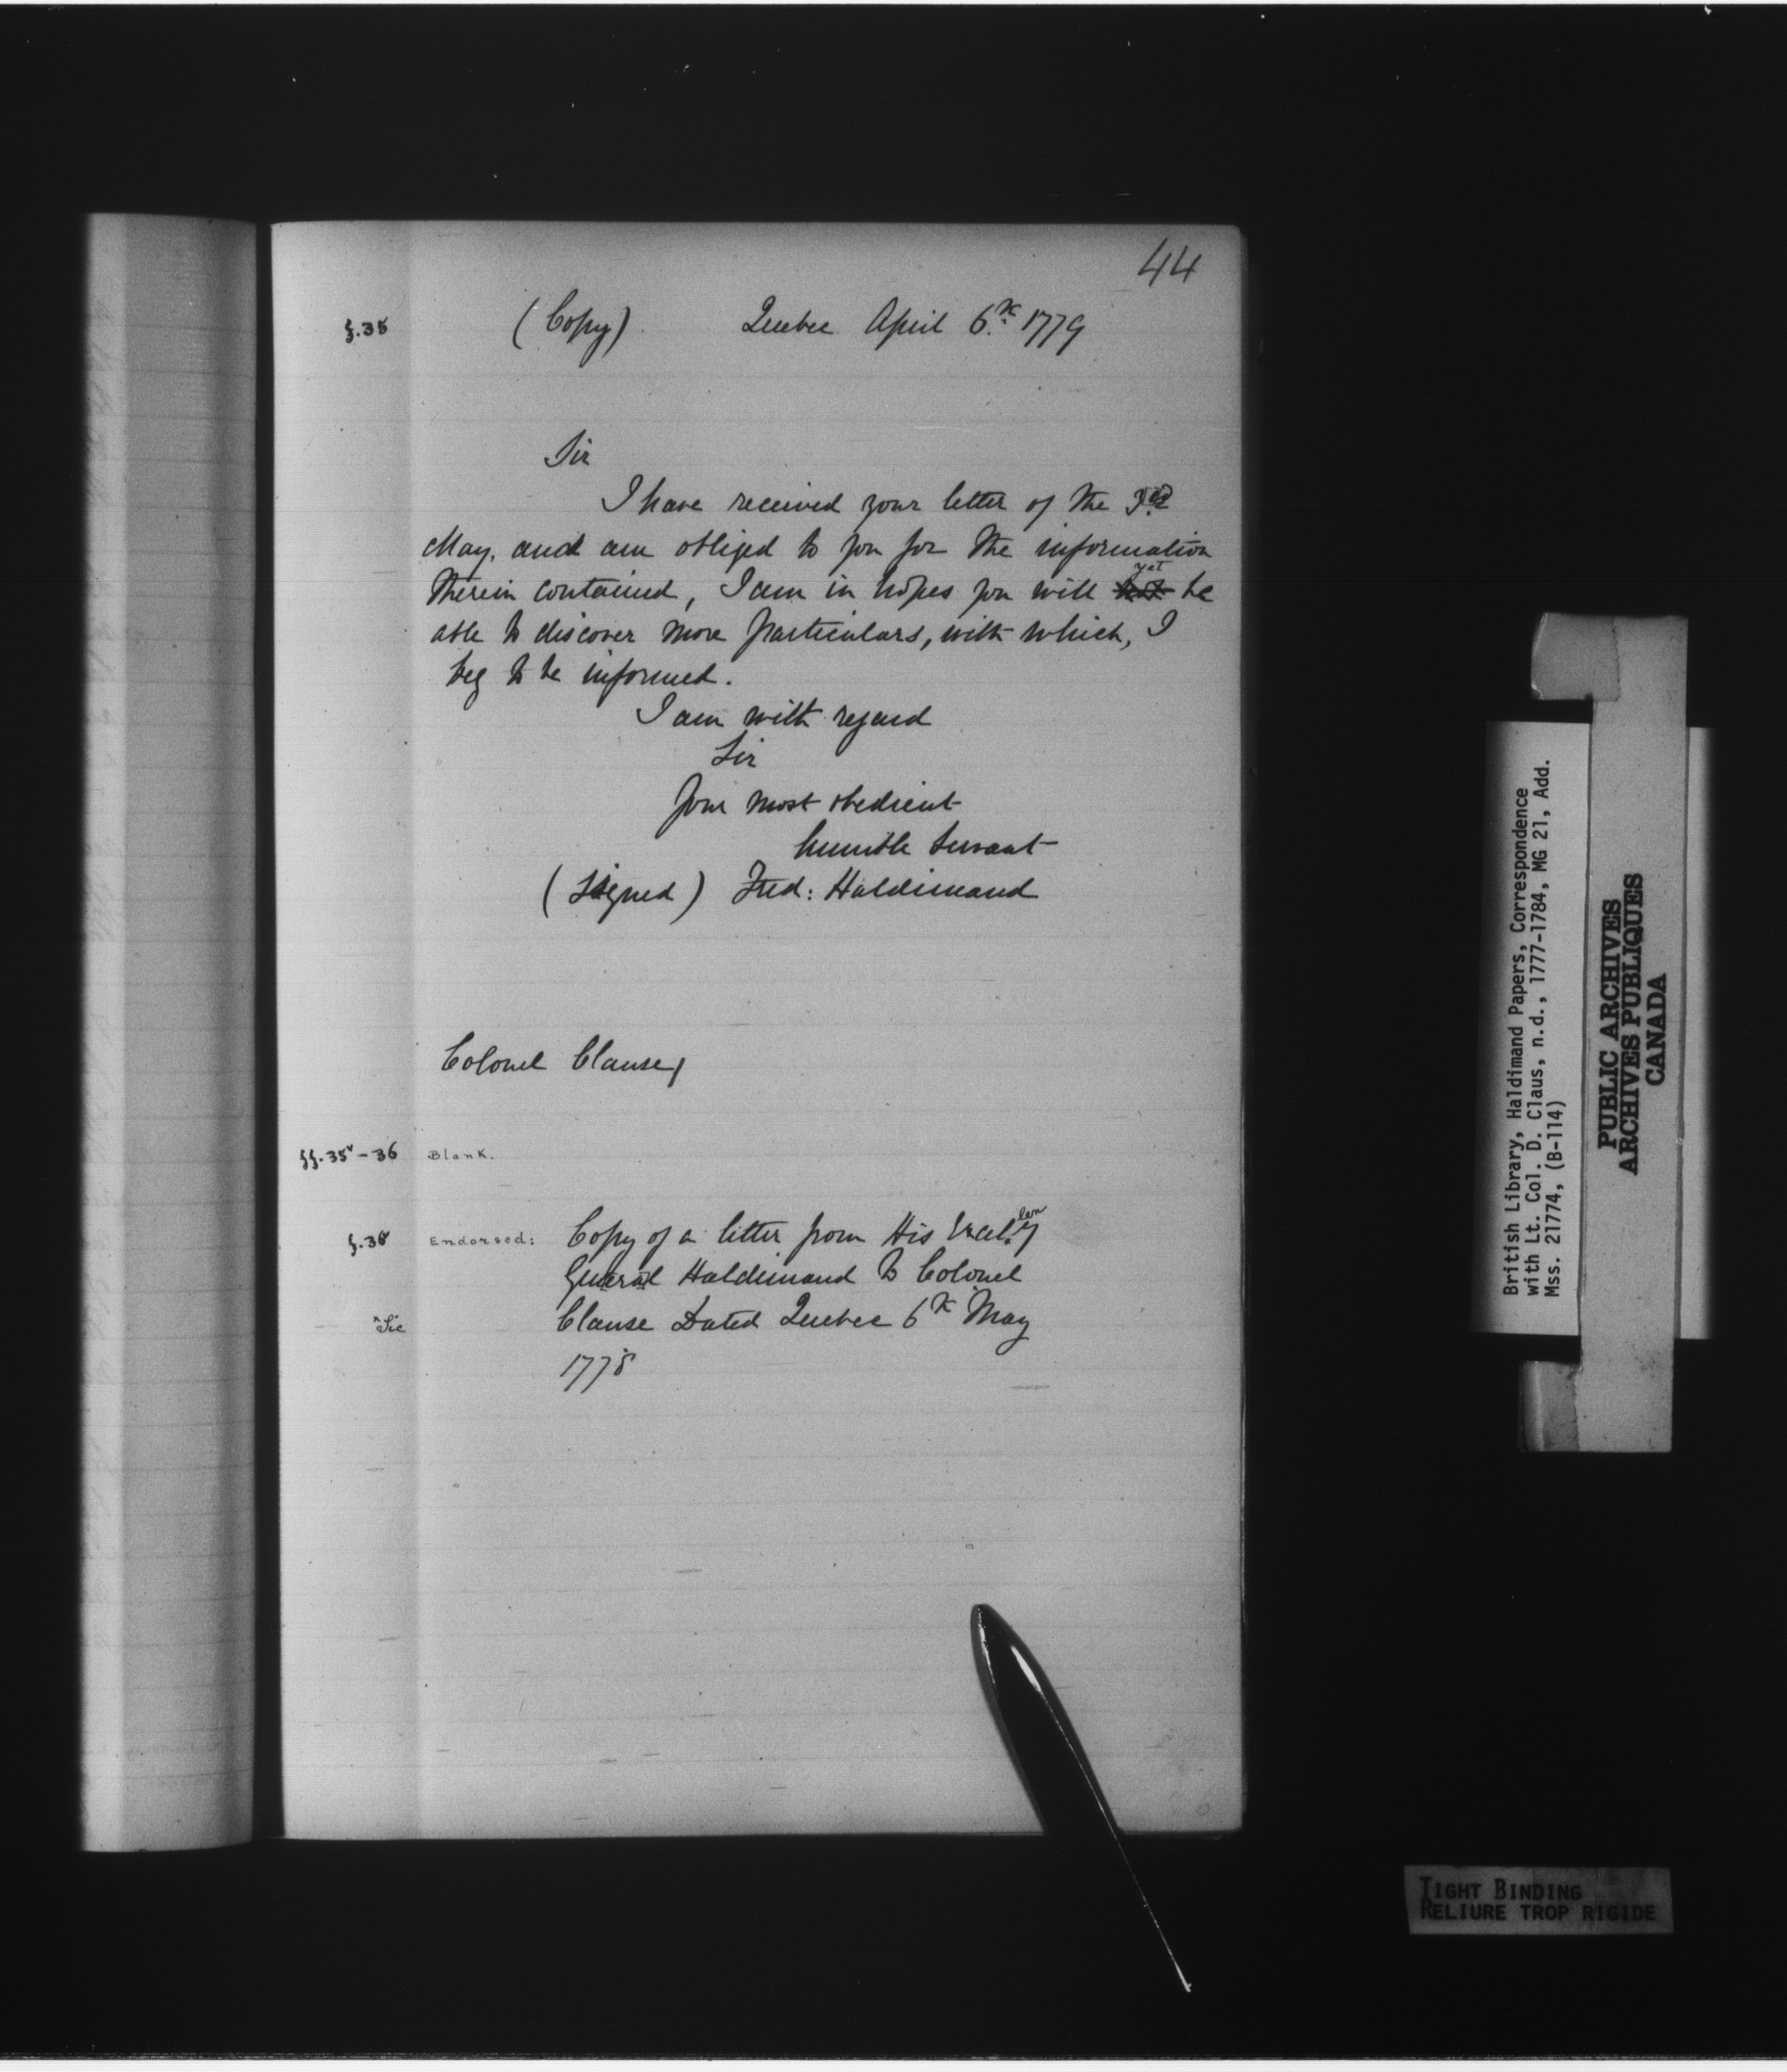 44
f.35 (Copy) Quebec April 6.th 1779
Sir
I have received your letter of the 3.rd
May, and am obliged to you for the information
therein contained, I am in hopes you will yet be
able to discover more particulars, with which, I
beg to be informed.
I am with regard
Sir
Your most obedient
humble Servant
(Signed) Fred: Haldimand
Colonel Clause,
ff.35v-36 Blank.
f.36v Endorsed: Copy of a letter from His Excel.len y
General Haldimand to Colonel
Sic Clause Dated Quebec 6th May
1778
British Library, Haldimand Papers, Correspondence
with Lt. Col. D. Claus, n.d., 1777-1784, MG 21, Add.
Mss. 21774, (B-114)
PUBLIC ARCHIVES
ARCHIVES PUBLIQUES
CANADA
TIGHT BINDING
RELIURE TROP RIGIDE